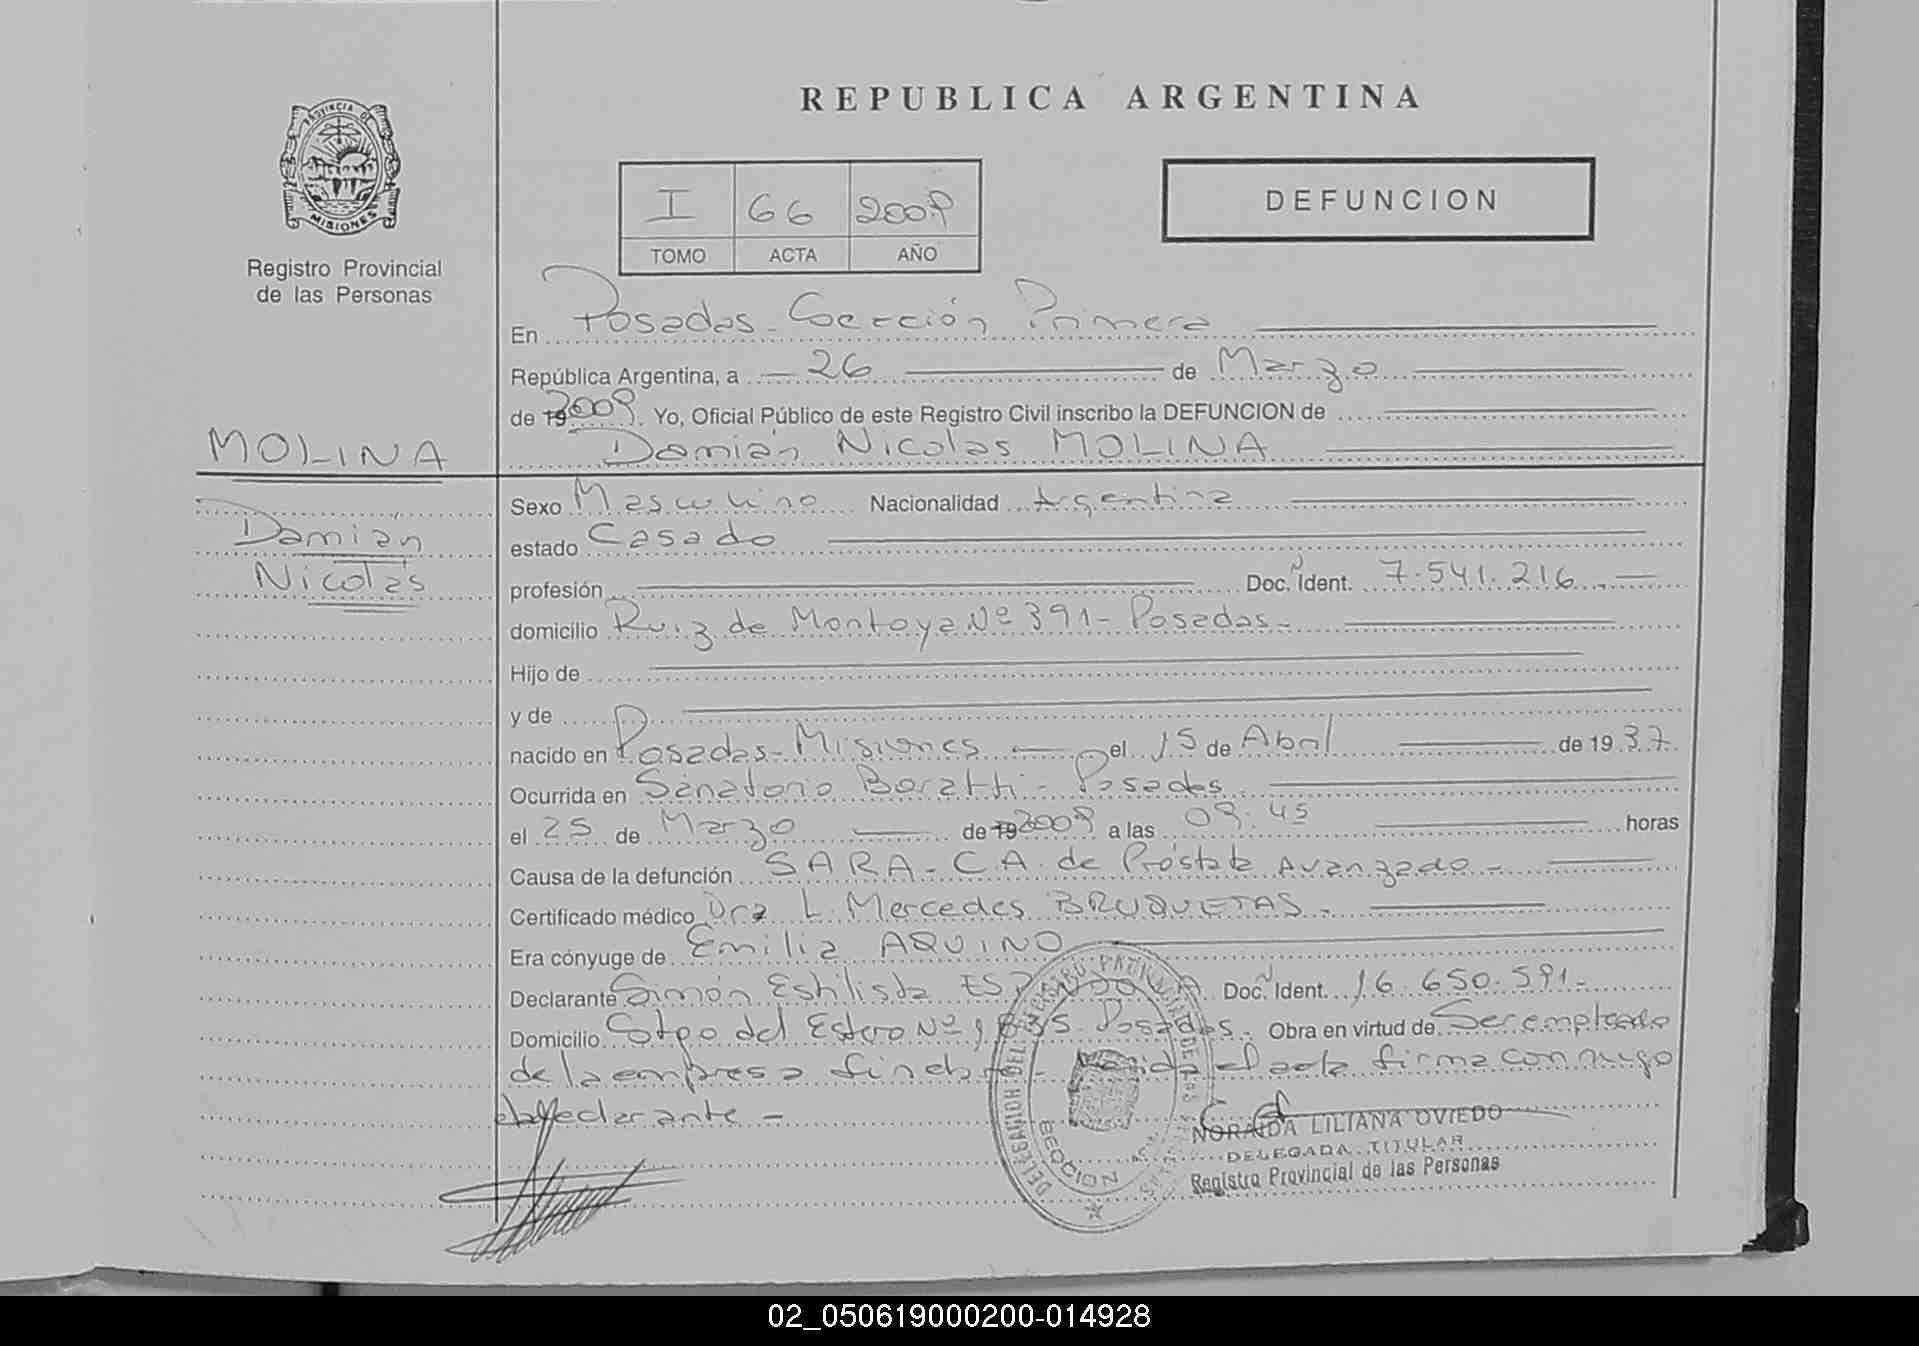 REPUBLICA ARGENTINA
PROVINCIA DE
MISIONES
Registro Provincial
de las Personas
I 66 2009
TOMO ACTA AÑO
DEFUNCION
En Posadas - Sección Primera
República Argentina, a 26 de Marzo
de 19 2009. Yo, Oficial Público de este Registro Civil inscribo la DEFUNCION de
Damián Nicolas MOLINA
MOLINA
Damián
Nicolás
Sexo Masculino Nacionalidad Argentina
estado Casado
profesión Doc. Ident. Nº 7.541.216
domicilio Ruiz de Montoya Nº 391 - Posadas -
Hijo de
y de
nacido en Posadas - Misiones el 15 de Abril de 1937
Ocurrida en Sanatorio Boratti - Posadas
el 25 de Marzo de 19 2009 a las 09:45 horas
Causa de la defunción SARA - C.A. de Próstata Avanzado -
Certificado médico Dra L. Mercedes BRUQUETAS -
Era cónyuge de Emilia AQUINO
Declarante Simón Estilista Doc. Ident. Nº 16.650.591 -
Domicilio Stgo del Estero Nº Posadas - Obra en virtud de Ser empleado
de la empresa el acta firma conmigo
el declarante -
DELEGACION DEL REGISTRO DE LAS
SECCION
NORAIDA LILIANA OVIEDO
DELEGADA TITULAR
Registro Provincial de las Personas
02_050619000200-014928